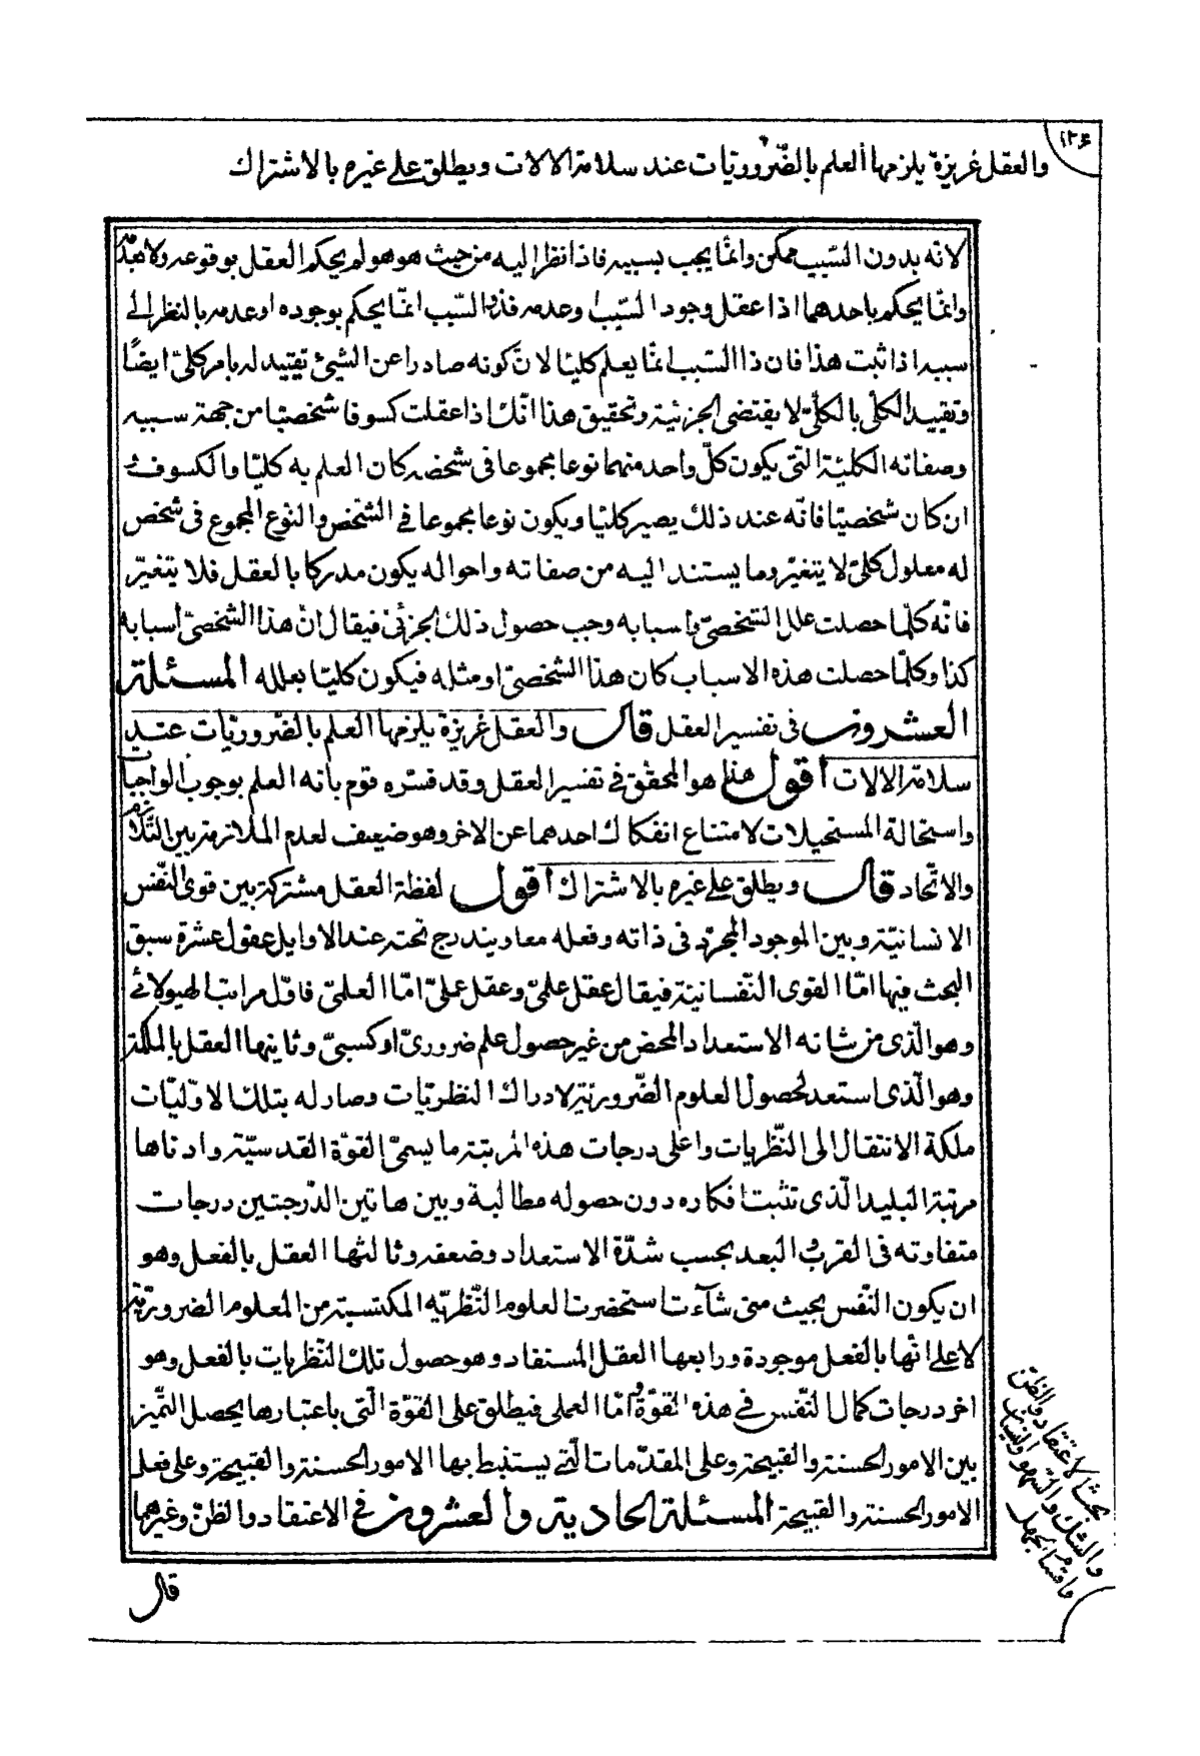 ١٢۶
والعقل غريزة يلزمها العلم بالضّروريّات عند سلامة الالات ويطلق على غيره بالاشتراك
لانه بدون السّبب ممكن وانّما يجب بسببه فاذا نظر اليه من حيث هو هو لم يحكم العقل بوقوعه ولا بعدمه
وانّما يحكم باحدهما اذا عقل وجود السّبب وعدمه فذو السّبب انّما يحكم بوجوده او عدمه بالنظر الى
سببه اذا ثبت هذا فان ذا السّبب انّما يعلم كليّا لانّ كونه صادرا عن الشيئ تقييد له بامر كلىّ ايضًا
وتقييد الكلّى بالكلّىّ لا يقتضى الجزئيّة وتحقيق هذا انّك اذا عقلت كسوفا شخصيّا من جهة سببه
وصفاته الكليّة الّتى يكون كلّ واحد منهما نوعا مجموعا فى شخصه كان العلم به كليّا والكسوف
ان كان شخصيّا فانّه عند ذلك يصير كليّا ويكون نوعا مجموعا فى الشّخص والنّوع المجموع فى شخص
له معلول كلىّ لا يتغيّر وما يستند اليه من صفاته واحواله يكون مدركا بالعقل فلا يتغيّر
فانّه كلّما حصلت علل الشّخصىّ باسبابه وجب حصول ذلك الجزئى فيقال انّ هذا الشخصىّ اسبابه
كذا وكلّما حصلت هذه الاسباب كان هذا الشّخصىّ او مثله فيكون كليّا بعلله المسئلة
العشرون فى تفسير العقل قال والعقل غريزة يلزمها العلم بالضّروريّات عند
سلامة الالات اقول هذا هو المحقّق فى تفسير العقل وقد فسّره قوم بانه العلم بوجوب الواجبات
واستحالة المستحيلات لامتناع انفكاك احدهما عن الاخر وهو ضعيف لعدم الملازمة بين التّلازم
والاتّحاد قال ويطلق على غيره بالاشتراك اقول لفظة العقل مشتركة بين قوى النّفس
الانسانيّة وبين الموجود المجرّد فى ذاته وفعله معا ويندرج تحته عند الاوايل عقول عشرة سبق
البحث فيها امّا القوى النّفسانيّة فيقال عقل علمىّ وعقل عملىّ امّا العلمىّ فاوّل مراتبه الهيولائى
وهو الّذى من شانه الاستعداد المحض من غير حصول علم ضرورىّ او كسبىّ وثانيها العقل بالملكة
وهو الّذى استعد لحصول العلوم الضّروريّة لادراك النظريّات وصار له بتلك الاوّليّات
ملكة الانتقال الى النّظريات واعلى درجات هذه المرتبة ما يسمىّ القوّة القدسيّة وادناها
مرتبة البليد الّذى تثبت افكاره دون حصوله مطالبة وبين هاتين الدّرجتين درجات
متفاوته فى القرب والبعد بحسب شدّة الاستعداد وضعفه وثالثها العقل بالفعل وهو
ان يكون النّفس بحيث متى شآءت استحضرت العلوم النّظريّه المكتسبة من العلوم الضروريّة
لا على انّها بالفعل موجودة ورابعها العقل المستفاد وهو حصول تلك النّظريات بالفعل وهو
اخر درجات كمال النّفس فى هذه القوّة وامّا العملى فيطلق على القوّة الّتى باعتبارها يحصل التّميز
بين الامور الحسنة والقبيحة وعلى المقدّمات الّتى يستنبط بها الامور الحسنة والقبيحة وعلى فعل
الامور الحسنة والقبيحة المسئلة الحادية والعشرون فى الاعتقاد والظنّ وغيرهما
بحث الاعتقاد والظن
والشك والسّهو والنسيان
واقسام الجهل
قال